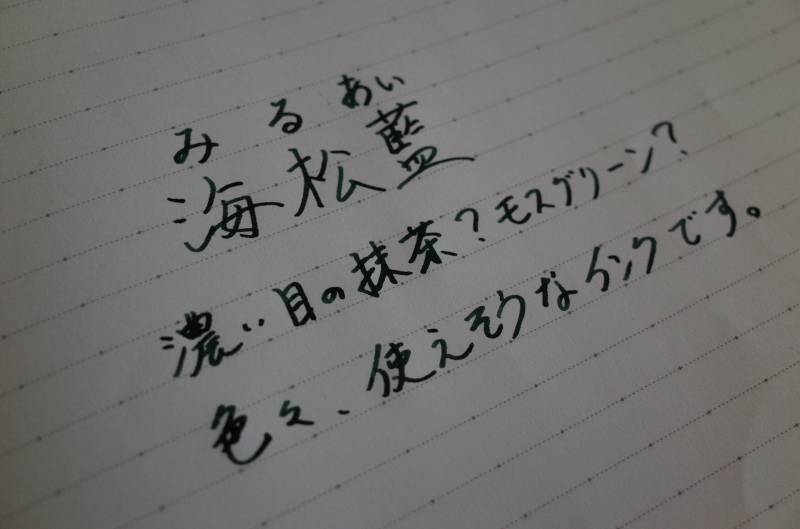 みるあい
海松藍
濃い目の抹茶？モスグリーン？
色々、使えそうなインクです。